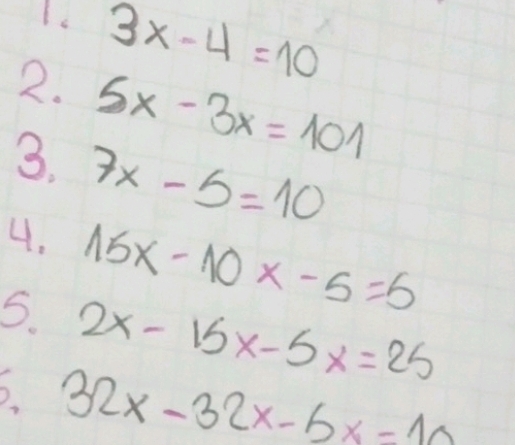 1. 3x - 4 = 10
2. 5x - 3x = 101
3. 7x - 5 = 10
4. 15x - 10x - 5 = 5
5. 2x - 15x - 5x = 25
32x - 32x - 5x = 10